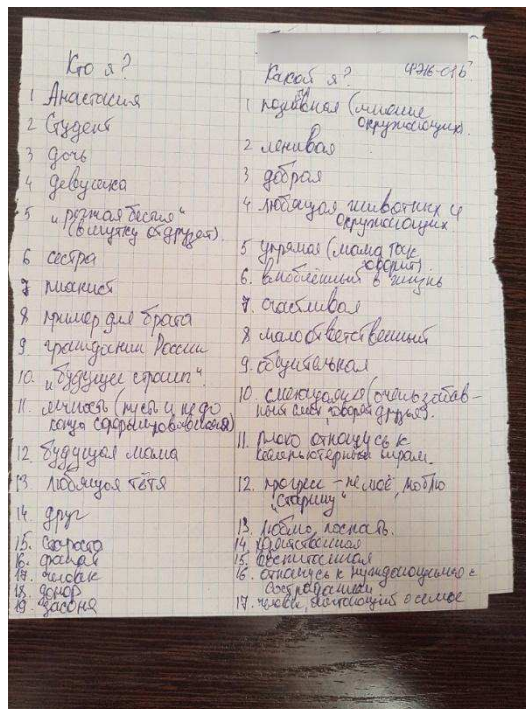 Кто я?
1 Анастасия
2 Студент
3 дочь
4 девушка
5 "рыжая бестия"
(в шутку от друзей).
6 сестра
7 пианист
8 пример для брата
9. гражданин России
10. "будущее страны".
11. личность (пусть и не до
конца сформировавшаяся)
12 будущая мама
13 любящая тётя
14. друг
15. староста
16.
17. человек
18. донор
19. засоня
Какой я?
1 позитивная (мнение
окружающих).
2 ленивая
3 добрая
4 любящая животных и
окружающих
5 упрямая (мама так
говорит)
6. влюблённый в жизнь
7. счастливая
8 малоответственный
9. общительная
10. смеющаяся (очень забав-
ный смех, говорят друзья).
11. плохо отношусь к
компьютерным играм.
12. прогресс - не моё, люблю
"старину"
13. люблю поспать.
14.
15. воспитанная
16. отношусь к нуждающимся с
состраданием
17. человек, мечтающий о семье